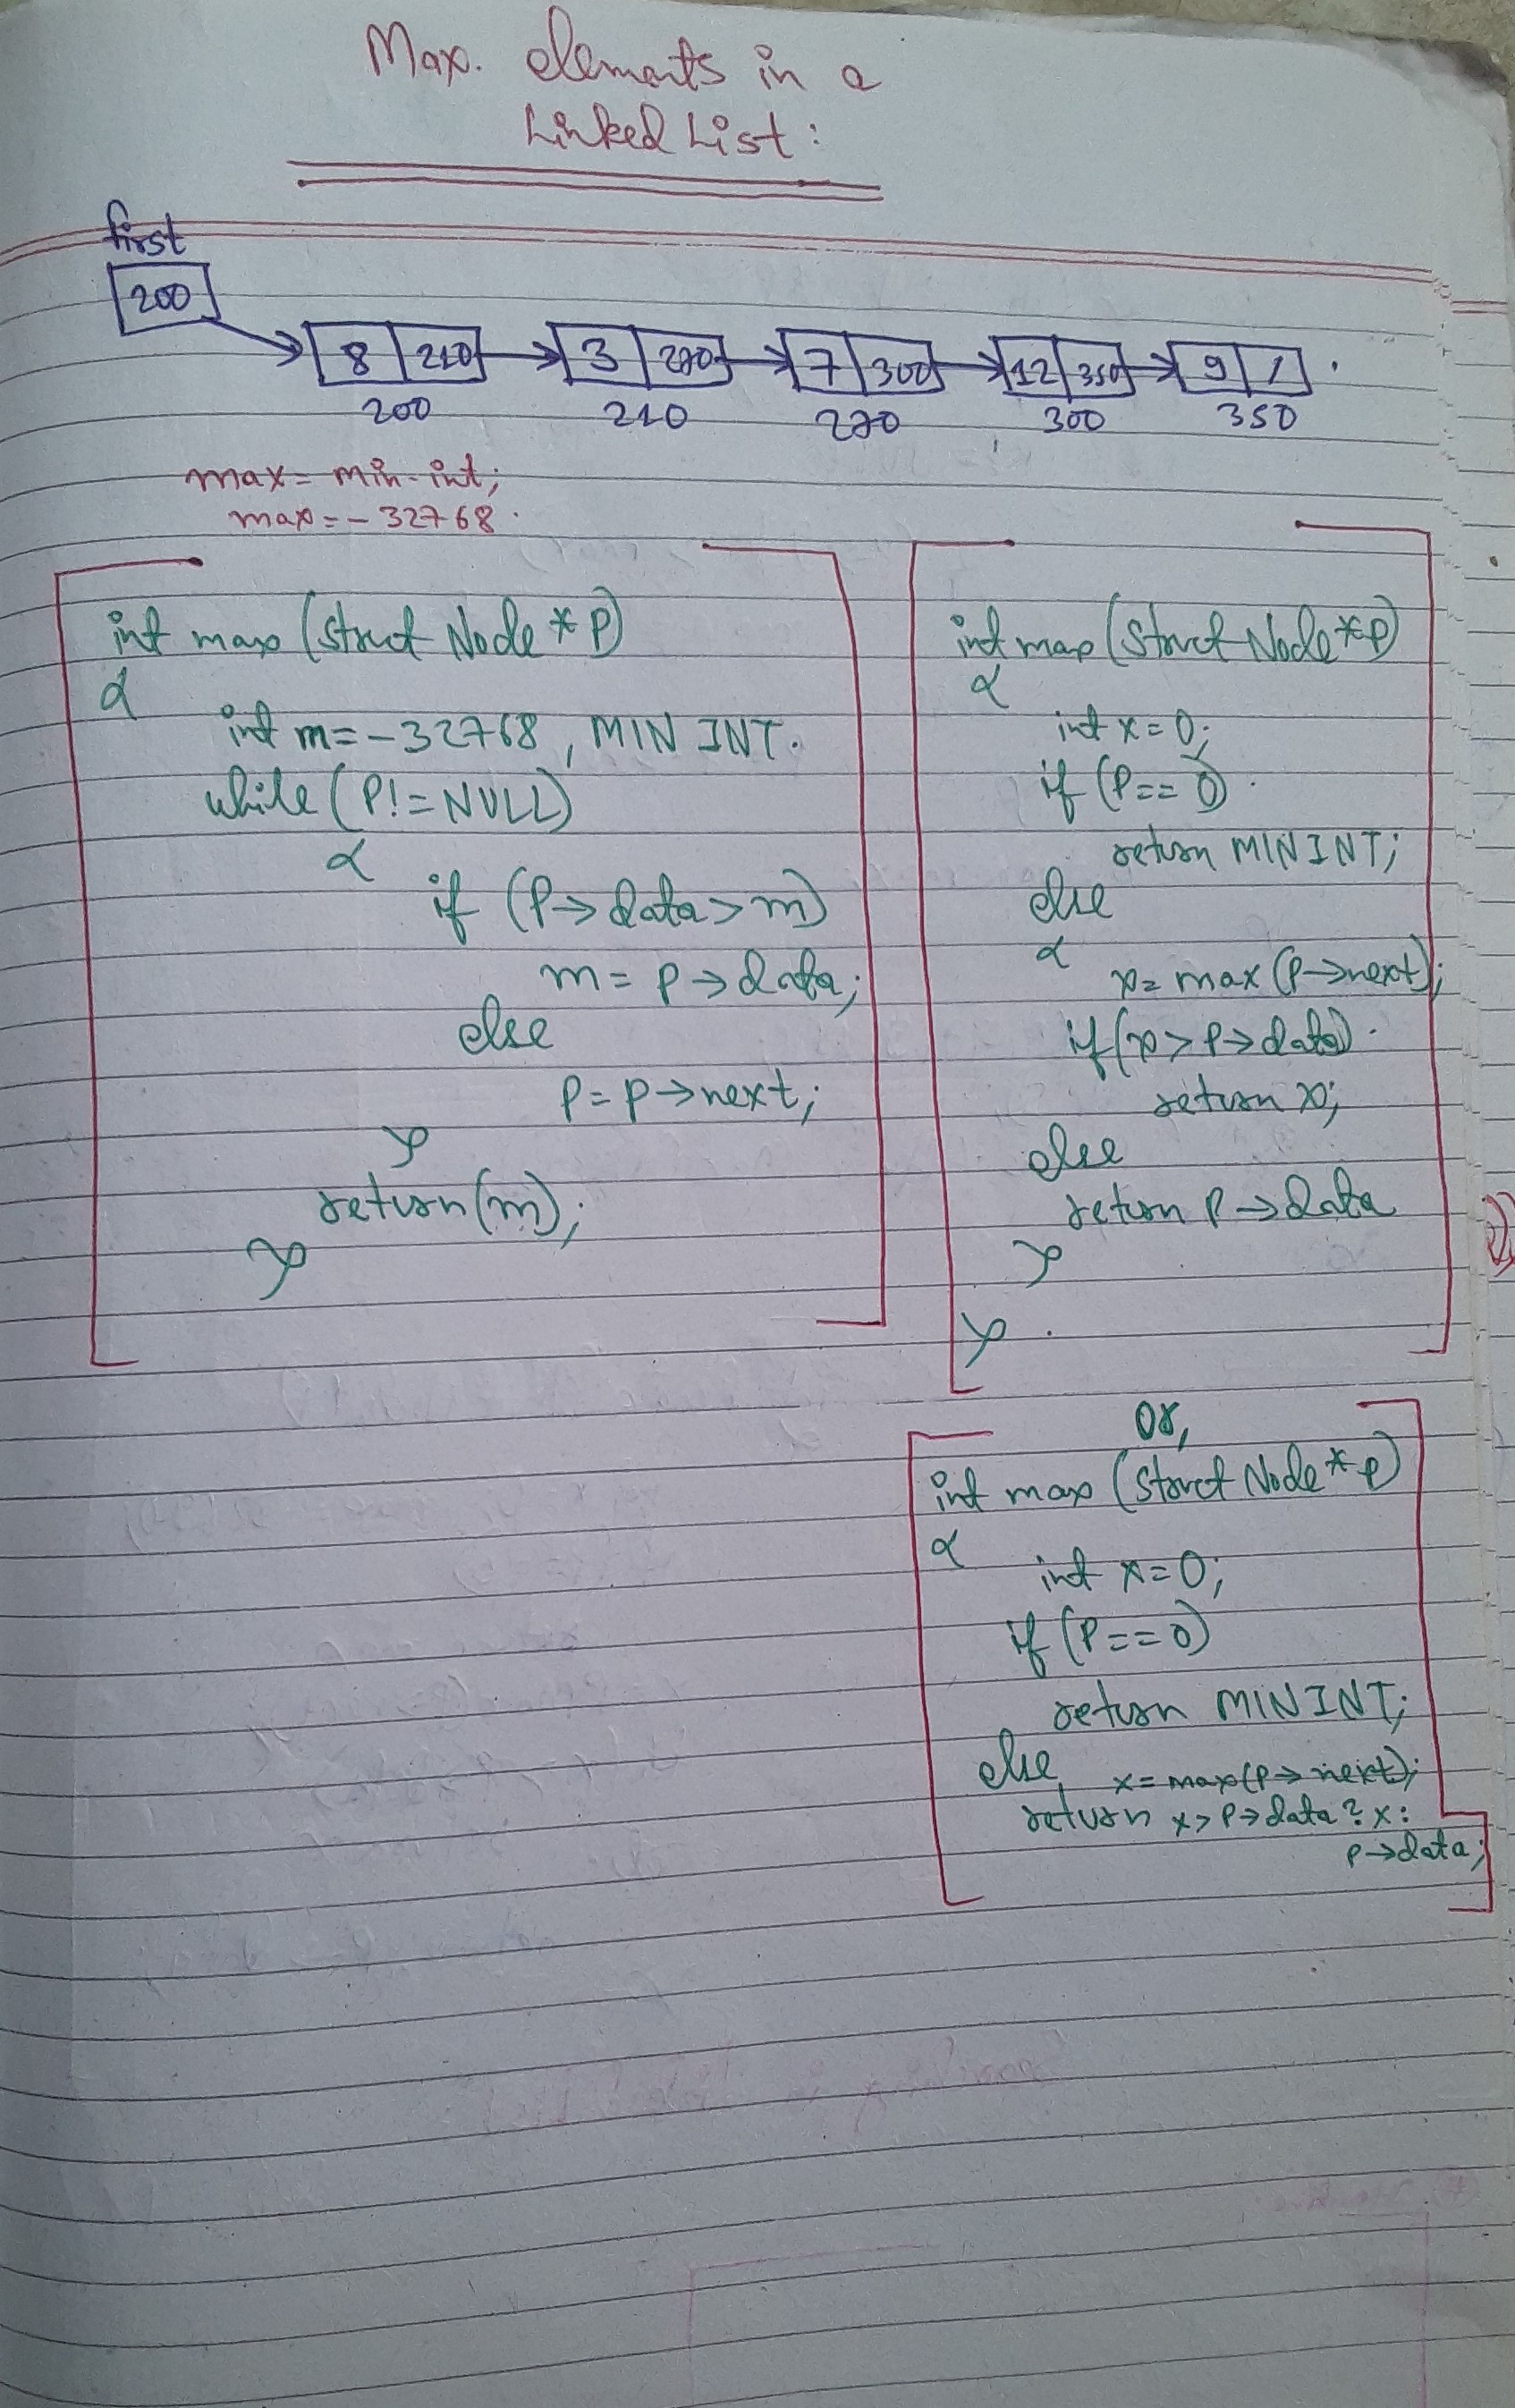 Max. elements in a
Linked List:
first
200
8 210 3 270 7 300 12 350 9 /
200 210 270 300 350
max = min-int;
max = -32768.
int max (struct Node *P)
{
int m = -32768, MIN INT.
while (P! = NULL)
{
if (P→data > m)
m = P→data;
else
P = P→next;
}
return (m);
}
int max (struct Node *P)
{
int x = 0;
if (P == 0)
return MIN INT;
else
{
x = max (P→next);
if (x > P→data)
return x;
else
return P→data
}
}
or,
int max (struct Node *P)
{
int x = 0;
if (P == 0)
return MIN INT;
else x = max(P→next);
return x > P→data ? x :
P→data;